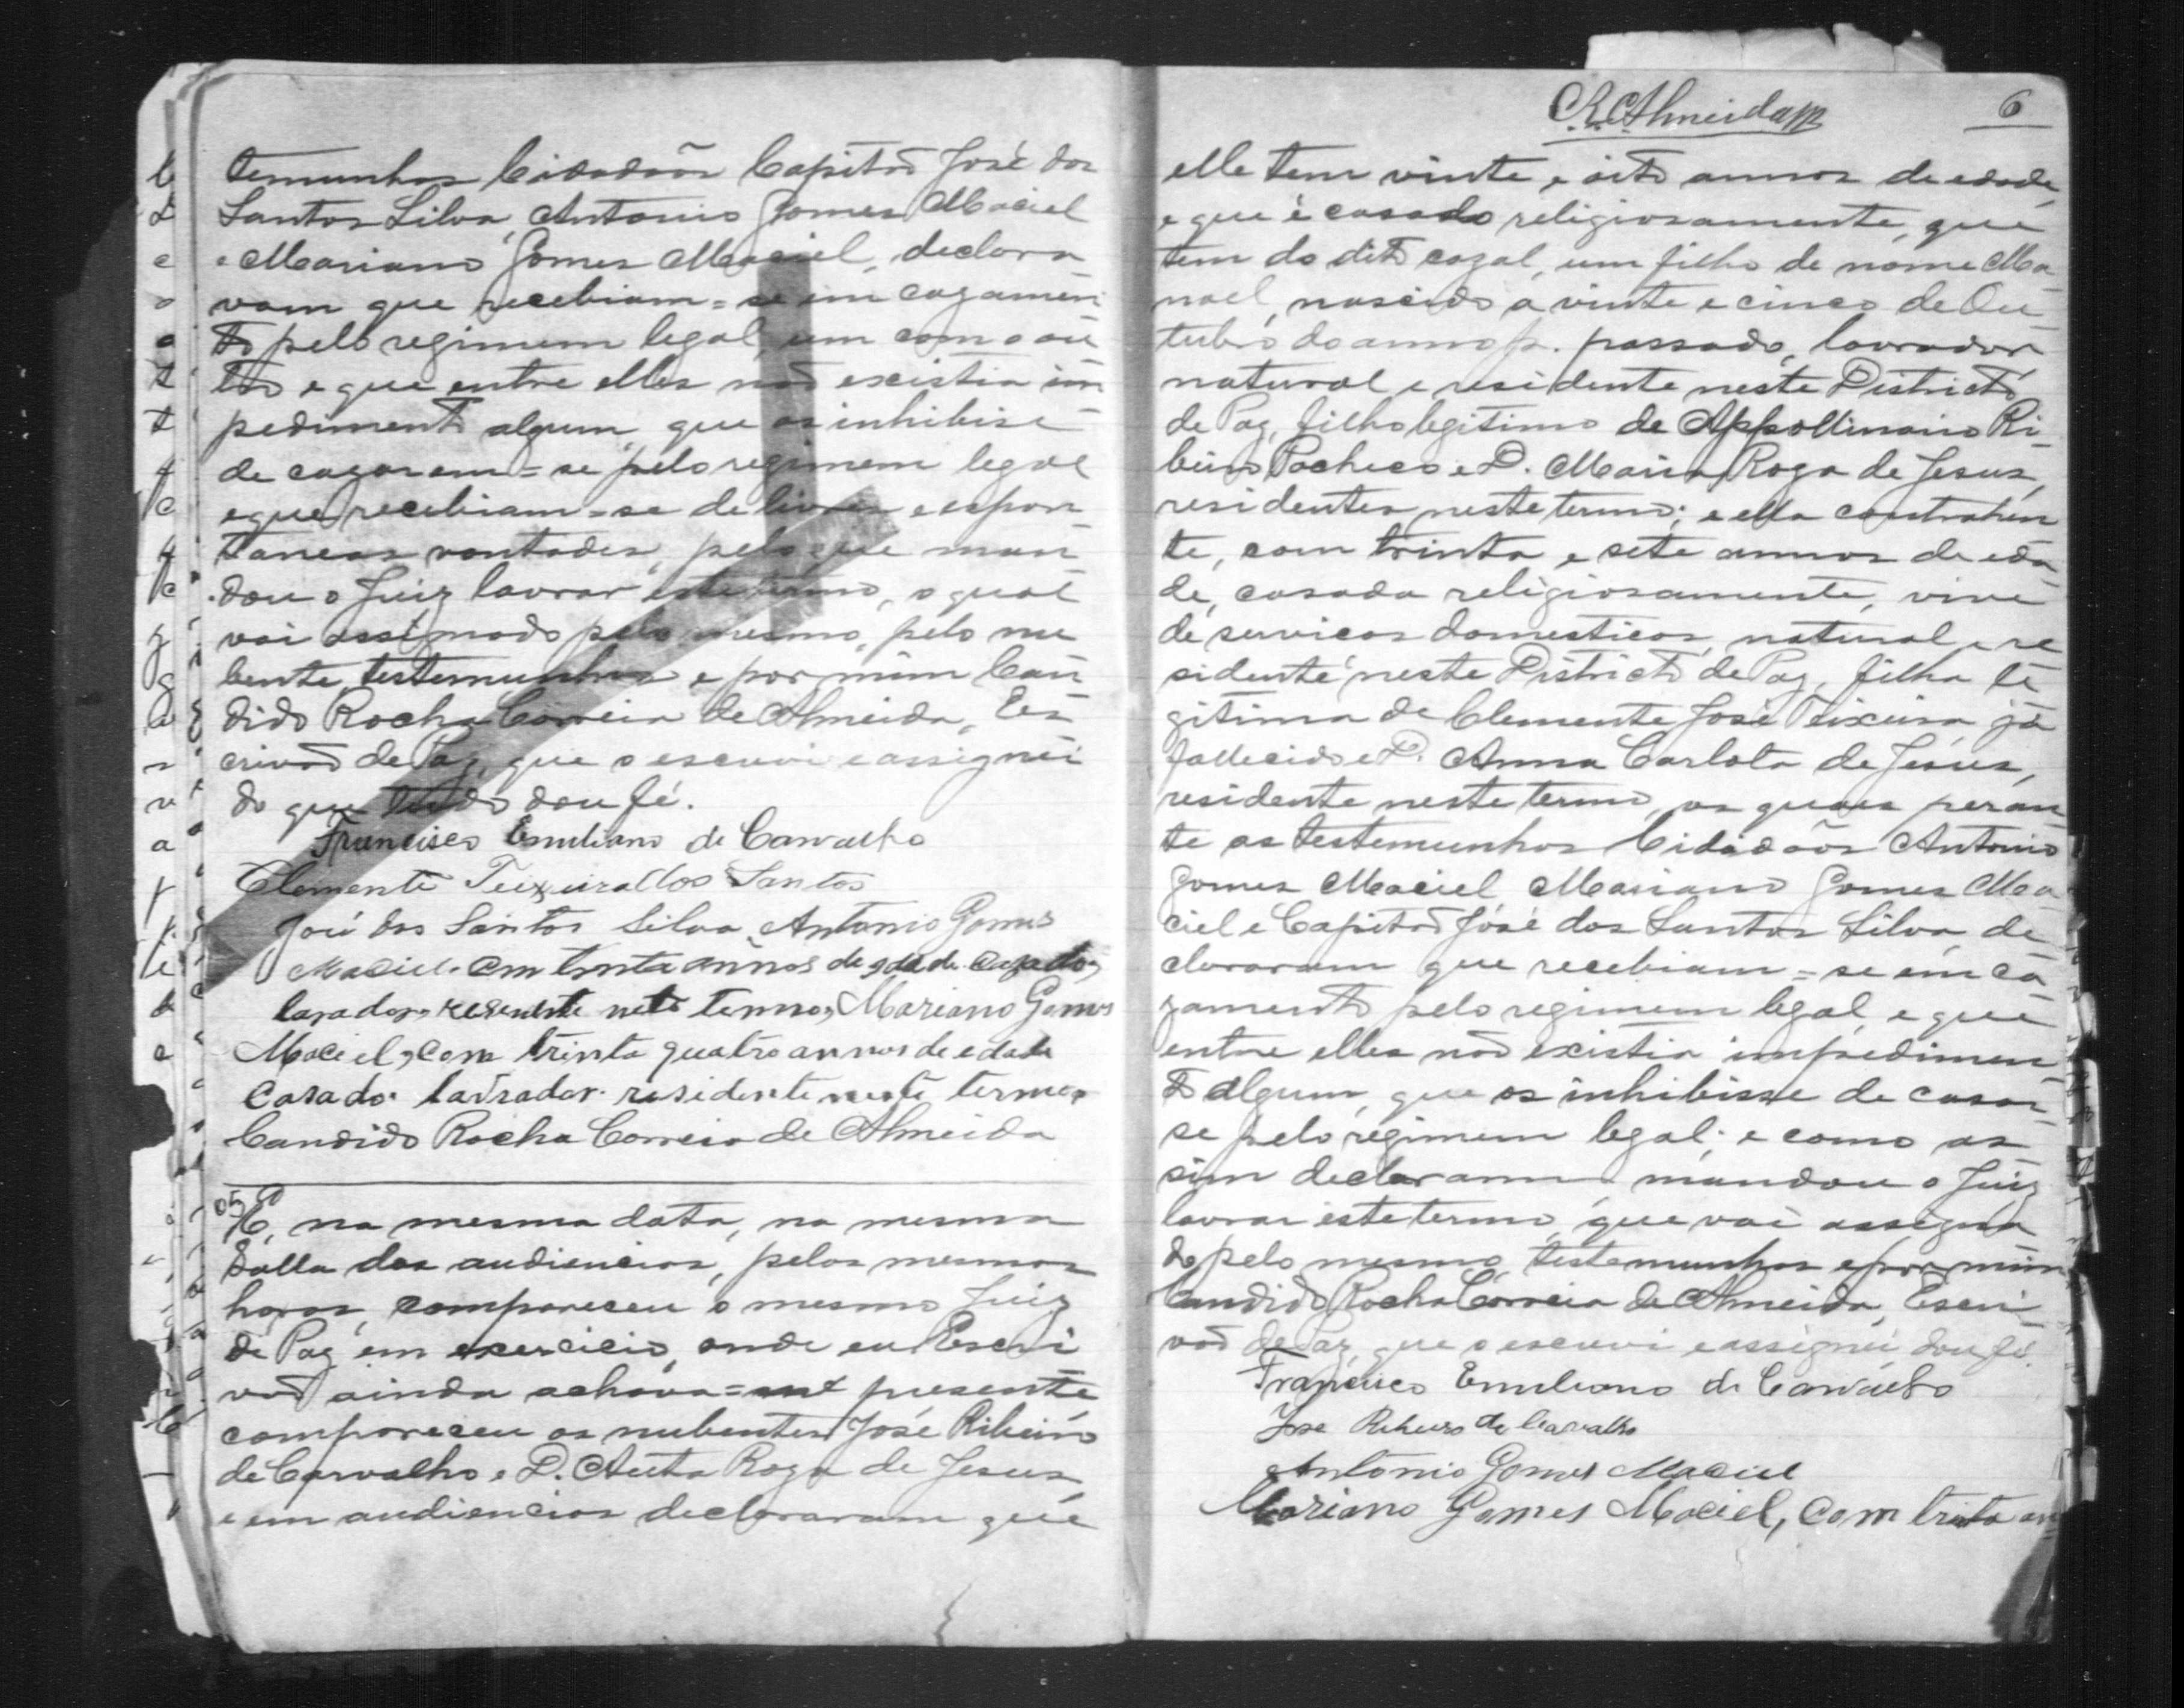 temunhas Cidadãos Capitão José dos
Santos Silva, Antonio Gomes Maciel
e Mariano Gomes Maciel, declara
vam que recebiam=se em cazamen
to pelo regimem legal, um com o ou
tro e que entre elles não existia im
pedimento algum, que os inhibise
de cazarem=se pelo regimem legal
e que recebiam=se de livres e espon
taneas vontades, pelo que man
dou o Juiz lavrar este termo, o qual
vai assignado pelo mesmo, pelo nu
bente, testemunhas e por mim Can
dido Rocha Correia de Almeida, Es
crivão de Paz, que o escrevi e assignei
do que tudo dou fé.
Francisco Emiliano de Carvalho
Clemente Teixeira dos Santos
José dos Santos Silva Antonio Gomes
Maciel. Com trinta annos de edade. Cazado,
lavrador, residente neste termo, Mariano Gomes
Maciel, com trinta quatro annos de edade
Casado. lavrador. residente neste termo,
Candido Rocha Correia de Almeida
05 E, na mesma data, na mesma
Salla das audiencias, pelas mesmas
horas, compareceu o mesmo Juiz
de Paz em exercicio, onde eu Escri
vão ainda achava=me presente
compareceu os nubentes José Ribeiro
de Carvalho e D. Auta Roza de Jesus,
e em audiencias declararam que
C.R.C.Almeida 6
elle tem vinte e oito annos de edade,
e que é casado religiosamente, que
tem do dito cazal, um filho de nome Ma
noel, nascido a vinte e cinco de Ou
tubro do anno p. passado, lavrador
natural e residente neste Districto
de Paz, filho legitimo de Appollinario Ri
beiro Pacheco e D. Maria Roza de Jesus,
residentes neste termo; e ella contrahen
te, com trinta e sete annos de eda
de, casada religiosamente, vive
de servicos domesticos, natural e re
sidente neste Districto de Paz, filha le
gitima de Clemente José Teixeira, já
fallecido e D. Anna Carlota de Jesus,
residente neste termo, os quaes peran
te as testemunhas Cidadãos Antonio
Gomes Maciel, Mariano Gomes Ma
ciel e Capitão José dos Santos Silva, de
clararam que recebiam=se em ca
zamento pelo regimem legal, e que
entre elles não existia impedimen
to algum, que os inhibisse de casar
se pelo regimem legal; e como as
sim declararam mandou o Juiz
lavrar este termo, que vai assigna
do pelo mesmo, testemunhas e por mim
Candido Rocha Correia de Almeida, Escri
vão de Paz, que o escrevi e assignei, dou fé.
Francisco Emiliano de Carvalho
Jose Ribeiro de Carvalho
Antonio Gomes Maciel
Mariano Gomes Maciel, com trinta an